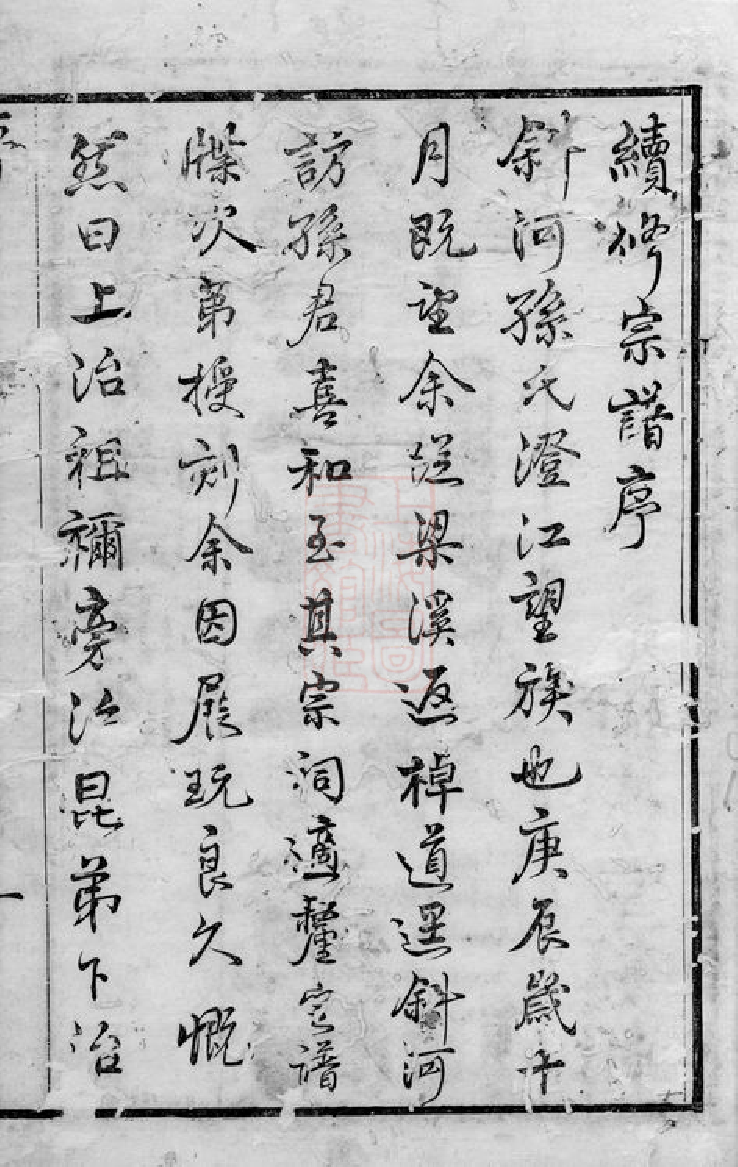 續修宗譜序
斜河孫氏澄江望族也庚辰歲十
月既望余從梁溪返棹道過斜河
訪孫君喜和至其宗祠適釐定譜
牒次第授刻余因展玩良久慨
然曰上治祖禰旁治昆弟下治
序
一